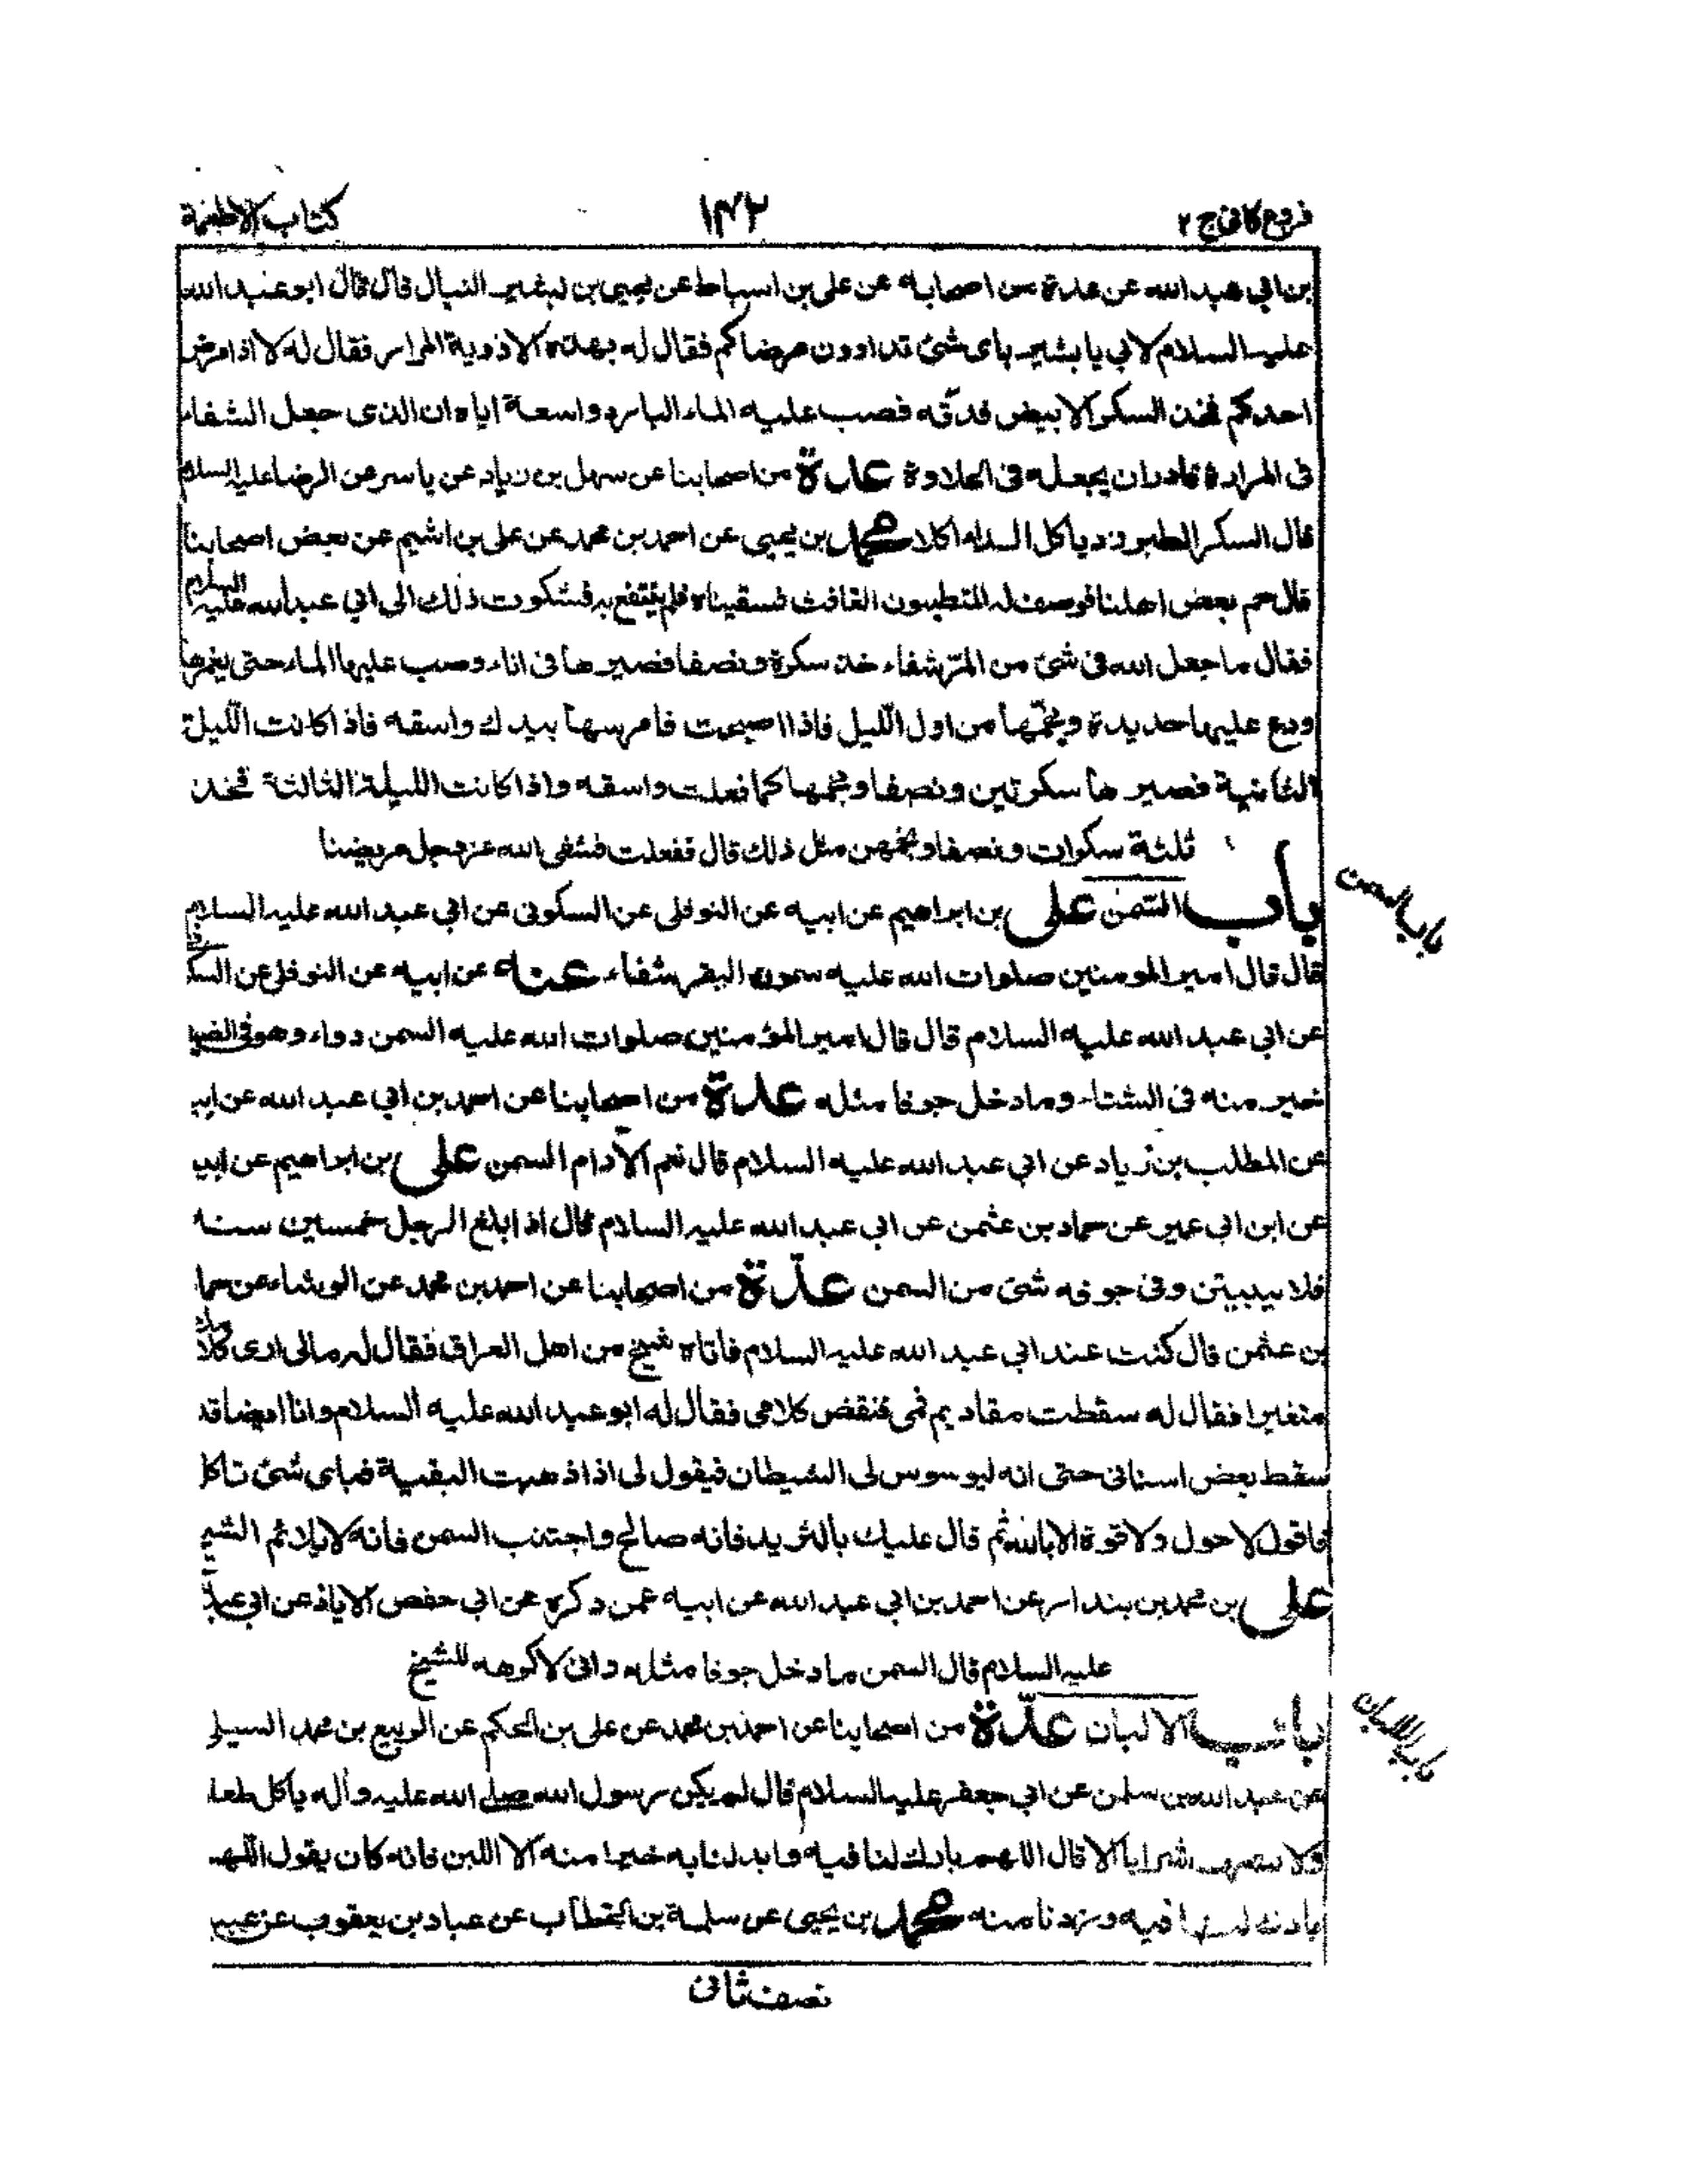 فروع كافى ج ٢
١٤٢
كتاب الاطعمة
بن ابي عبد الله عن عدة من اصحابه عن على بن اسباط عن يحيى بن بشير النبال قال قال ابو عبد الله
عليه السلام لابي يا بشير باى شئ تداوون مرضاكم فقال له بهذه الادوية المرار فقال له لا اذا مرض
احدكم فخذ السكر الابيض فدقّه فصب عليه الماء البارد واسعة اياه ان الذى جعل الشفاء
فى المرارة قادر ان يجعله فى الحلاوة عدة من اصحابنا عن سهل بن زياد عن ياسر عن الرضا عليه السلام
قال السكر الطبرزد ياكل الداء اكلا محمد بن يحيى عن احمد بن محمد عن على بن اشيم عن بعض اصحابنا
قال حم بعض اهلنا فوصف له المتطببون الغافث فسقيناه فلم ينتفع به فشكوت ذلك الى ابي عبد الله عليه السلام
فقال ما جعل الله فى شئ من المرّ شفاء خذ سكرة ونصفا فصيرها فى اناء وصب عليها الماء حتى يغمرها
وضع عليها حديدة ونجّمها من اول اللّيل فاذا اصبحت فامرسها بيدك واسقه فاذا كانت اللّيلة
الثانية فصيرها سكرتين ونصفا ونجمها كما فعلت واسقه واذا كانت الليلة الثالثة فخذ
ثلثة سكرات ونصفا ونجمهن مثل ذلك قال ففعلت فشفى الله عز وجل مريضنا
باب السّمن على بن ابراهيم عن ابيه عن النوفلى عن السكونى عن ابي عبد الله عليه السلام
باب السمن
قال قال امير المومنين صلوات الله عليه سمون البقر شفاء عنه عن ابيه عن النوفلى عن السكونى
عن ابي عبد الله عليه السلام قال قال امير المؤمنين صلوات الله عليه السمن دواء وهو فى الصيف
خير منه فى الشتاء وما دخل جوفا مثله عدة من اصحابنا عن احمد بن ابي عبد الله عن ابيه
عن المطلب بن زياد عن ابي عبد الله عليه السلام قال نعم الآدام السمن على بن ابراهيم عن ابيه
عن ابن ابي عمير عن حماد بن عثمن عن ابي عبد الله عليه السلام قال اذا بلغ الرجل خمسين سنه
فلا يبيتن وفى جوفه شئ من السمن عدّة من اصحابنا عن احمد بن محمد عن الوشاء عن حماد
بن عثمن قال كنت عند ابي عبد الله عليه السلام فاتاه شيخ من اهل العراق فقال له مالى ارى كلامك
متغيرا فقال له سقطت مقاديم فمى فنقض كلامى فقال له ابو عبد الله عليه السلام وانا ايضا قد
سقط بعض اسنانى حتى انه ليوسوس لى الشيطان فيقول لى اذا ذهبت البقية فباى شئ تاكل
فاقول لا حول ولا قوة الا بالله ثم قال عليك بالثريد فانه صالح واجتنب السمن فانه لا يلائم الشيخ
على بن محمد بن بندار عن احمد بن ابي عبد الله عن ابيه عمن ذكره عن ابي حفص الاباذ عن ابي عبد الله
عليه السلام قال السمن ما دخل جوفا مثله وانى لاكرهه للشيخ
باب الالبان عدّة من اصحابنا عن احمد بن محمد عن على بن الحكم عن الربيع بن محمد المسلى
باب الالبان
عن عبد الله بن سليمن عن ابي جعفر عليه السلام قال لم يكن رسول الله صلى الله عليه وآله ياكل طعاما
ولا يشرب شرابا الا قال اللهم بارك لنا فيه وابدلنا به خيرا منه الا اللبن فانه كان يقول اللّهم
بارك لنا فيه وزدنا منه محمد بن يحيى عن سلمة بن الخطاب عن عباد بن يعقوب عن عبيد
نصف ثانى